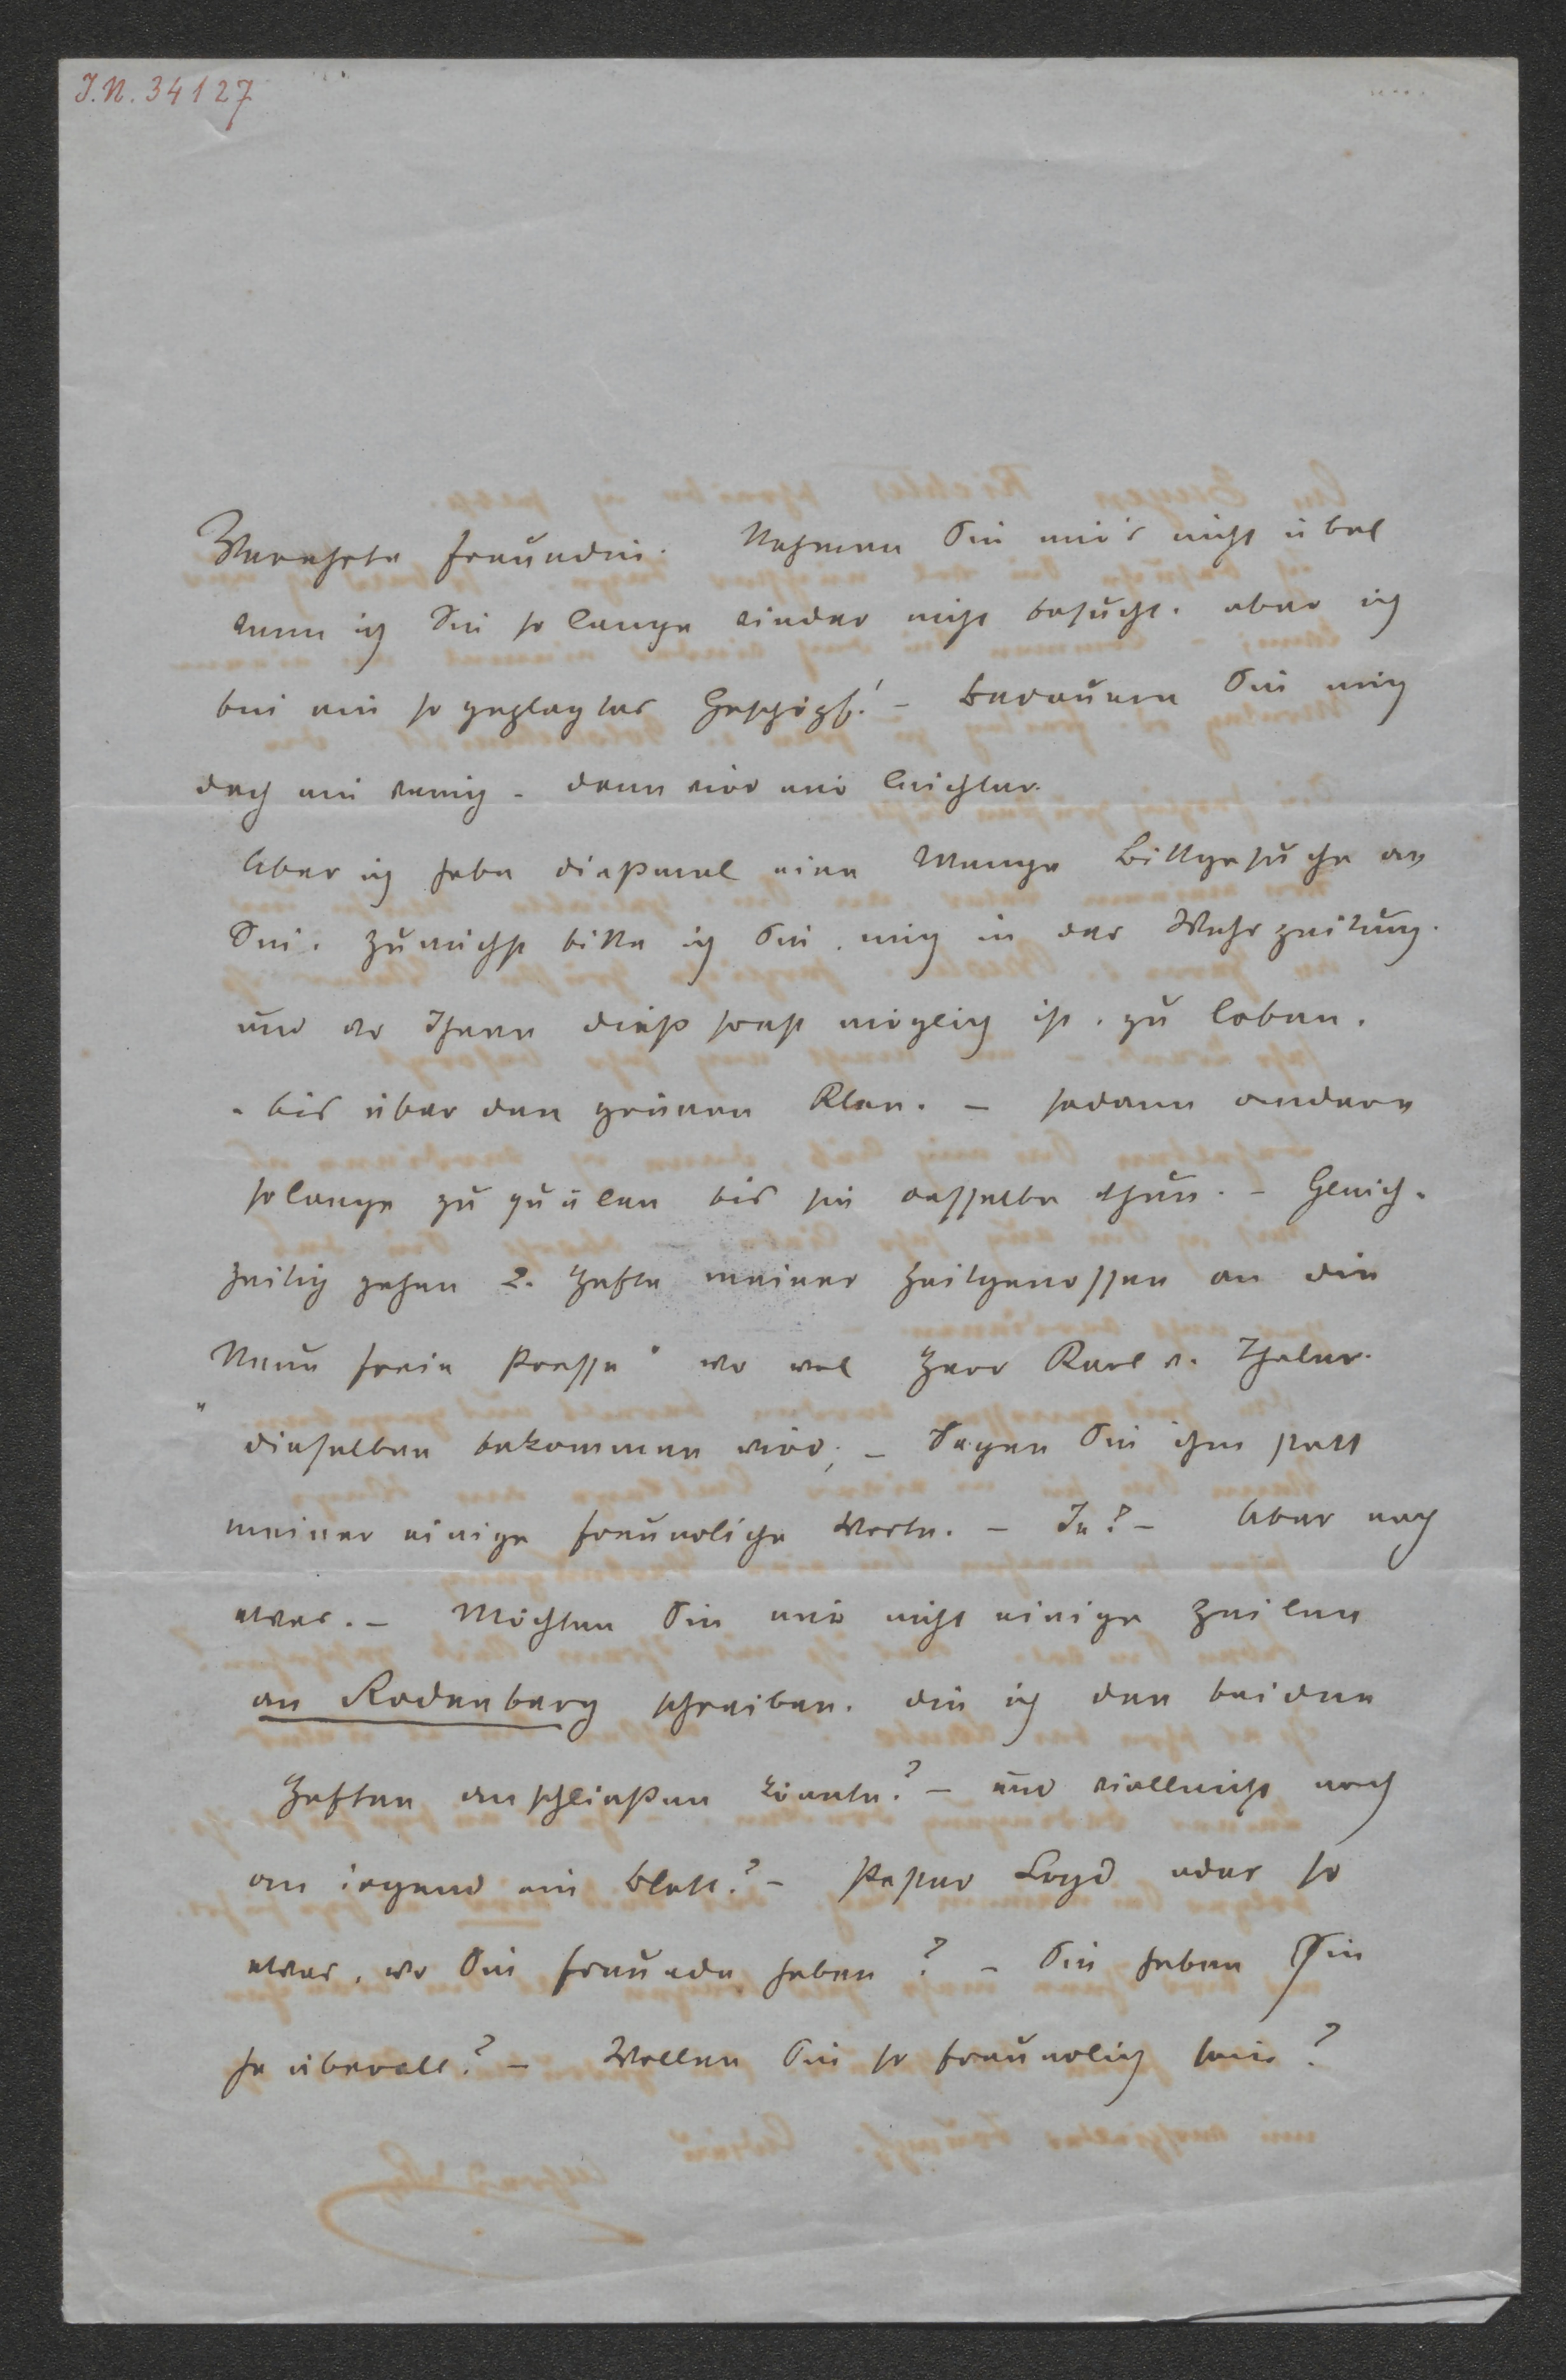 J.N. 34127
Verehrte Freundin. Nehmen Sie mir's nicht übel
wenn ich Sie so lange wieder nicht besucht. aber ich
bin ein so geplagtes Geschöpf! – Bedauern Sie mich
doch ein wenig – dann wird mir leichter.
Aber ich habe dießmal eine Menge Bittgesuche an
Sie. Zunächst bitte ich Sie, mich in der Wehrzeitung.
und wo Ihnen dieß sonst möglich ist. zu loben.
– bis über den grünen Klee. – sodann andere
solange zu quälen bis sie dasselbe thun. – Gleich-
zeitig gehen 2. Hefte meiner Zeitgenossen an die
„Neue freie Presse“ wo wol Herr Karl v. Thaler.
dieselben bekommen wird; – Sagen Sie ihm statt
meiner einige freundliche Worte. – Ja? – Aber noch
etwas. – Möchten Sie mir nicht einige Zeilen
an Rodenberg schreiben. die ich den beiden
Heften anschließen könnte? – und vielleicht noch
an irgend ein Blatt? – Pester Loyd oder so
etwas, wo Sie Freunde haben? – Sie haben Sie
ja überall? – Wollen Sie so freundlich sein?